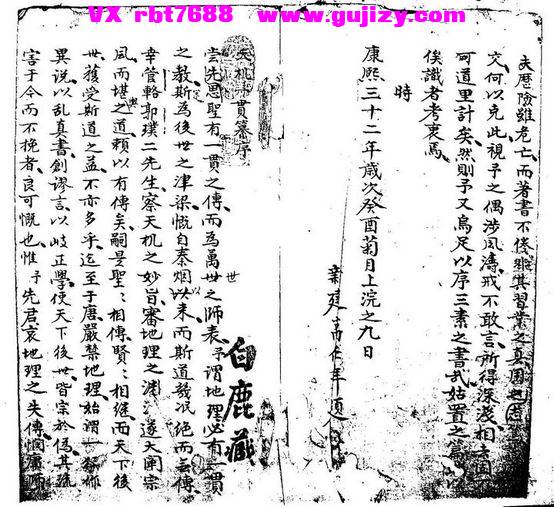 VX rbt7688 www.gujizy.com
夫歷險難危亡而著書不倦雖其習業之真固
交何以克此視予之偶涉風濤戒不敢言所得深淺相去固
可道里計矣然則予又烏足以序三素之書哉姑置之篇以
俟識者考衷焉
時
康熙三十二年歲次癸酉菊月上浣之九日
天机一貫纂序
嘗先思聖有一貫之傳而為萬世之師表予謂地理必有一貫
之教斯為後世之津梁慨自秦烟以來而斯道幾泯絕而無傳
幸管輅郭璞二先生察天机之妙旨審地理之淵源遂大闡宗
風而堪之道賴以有傳矣嗣是聖聖相傳賢賢相繼而天下後
世獲受斯道之益不亦多乎迄至于唐嚴禁地理始謂一行作
異說以乱真書創謬言以岐正學使天下後世皆宗於偽其流
害于今而不挽者良可慨也惟予先君哀地理之失傳憫
白鹿藏